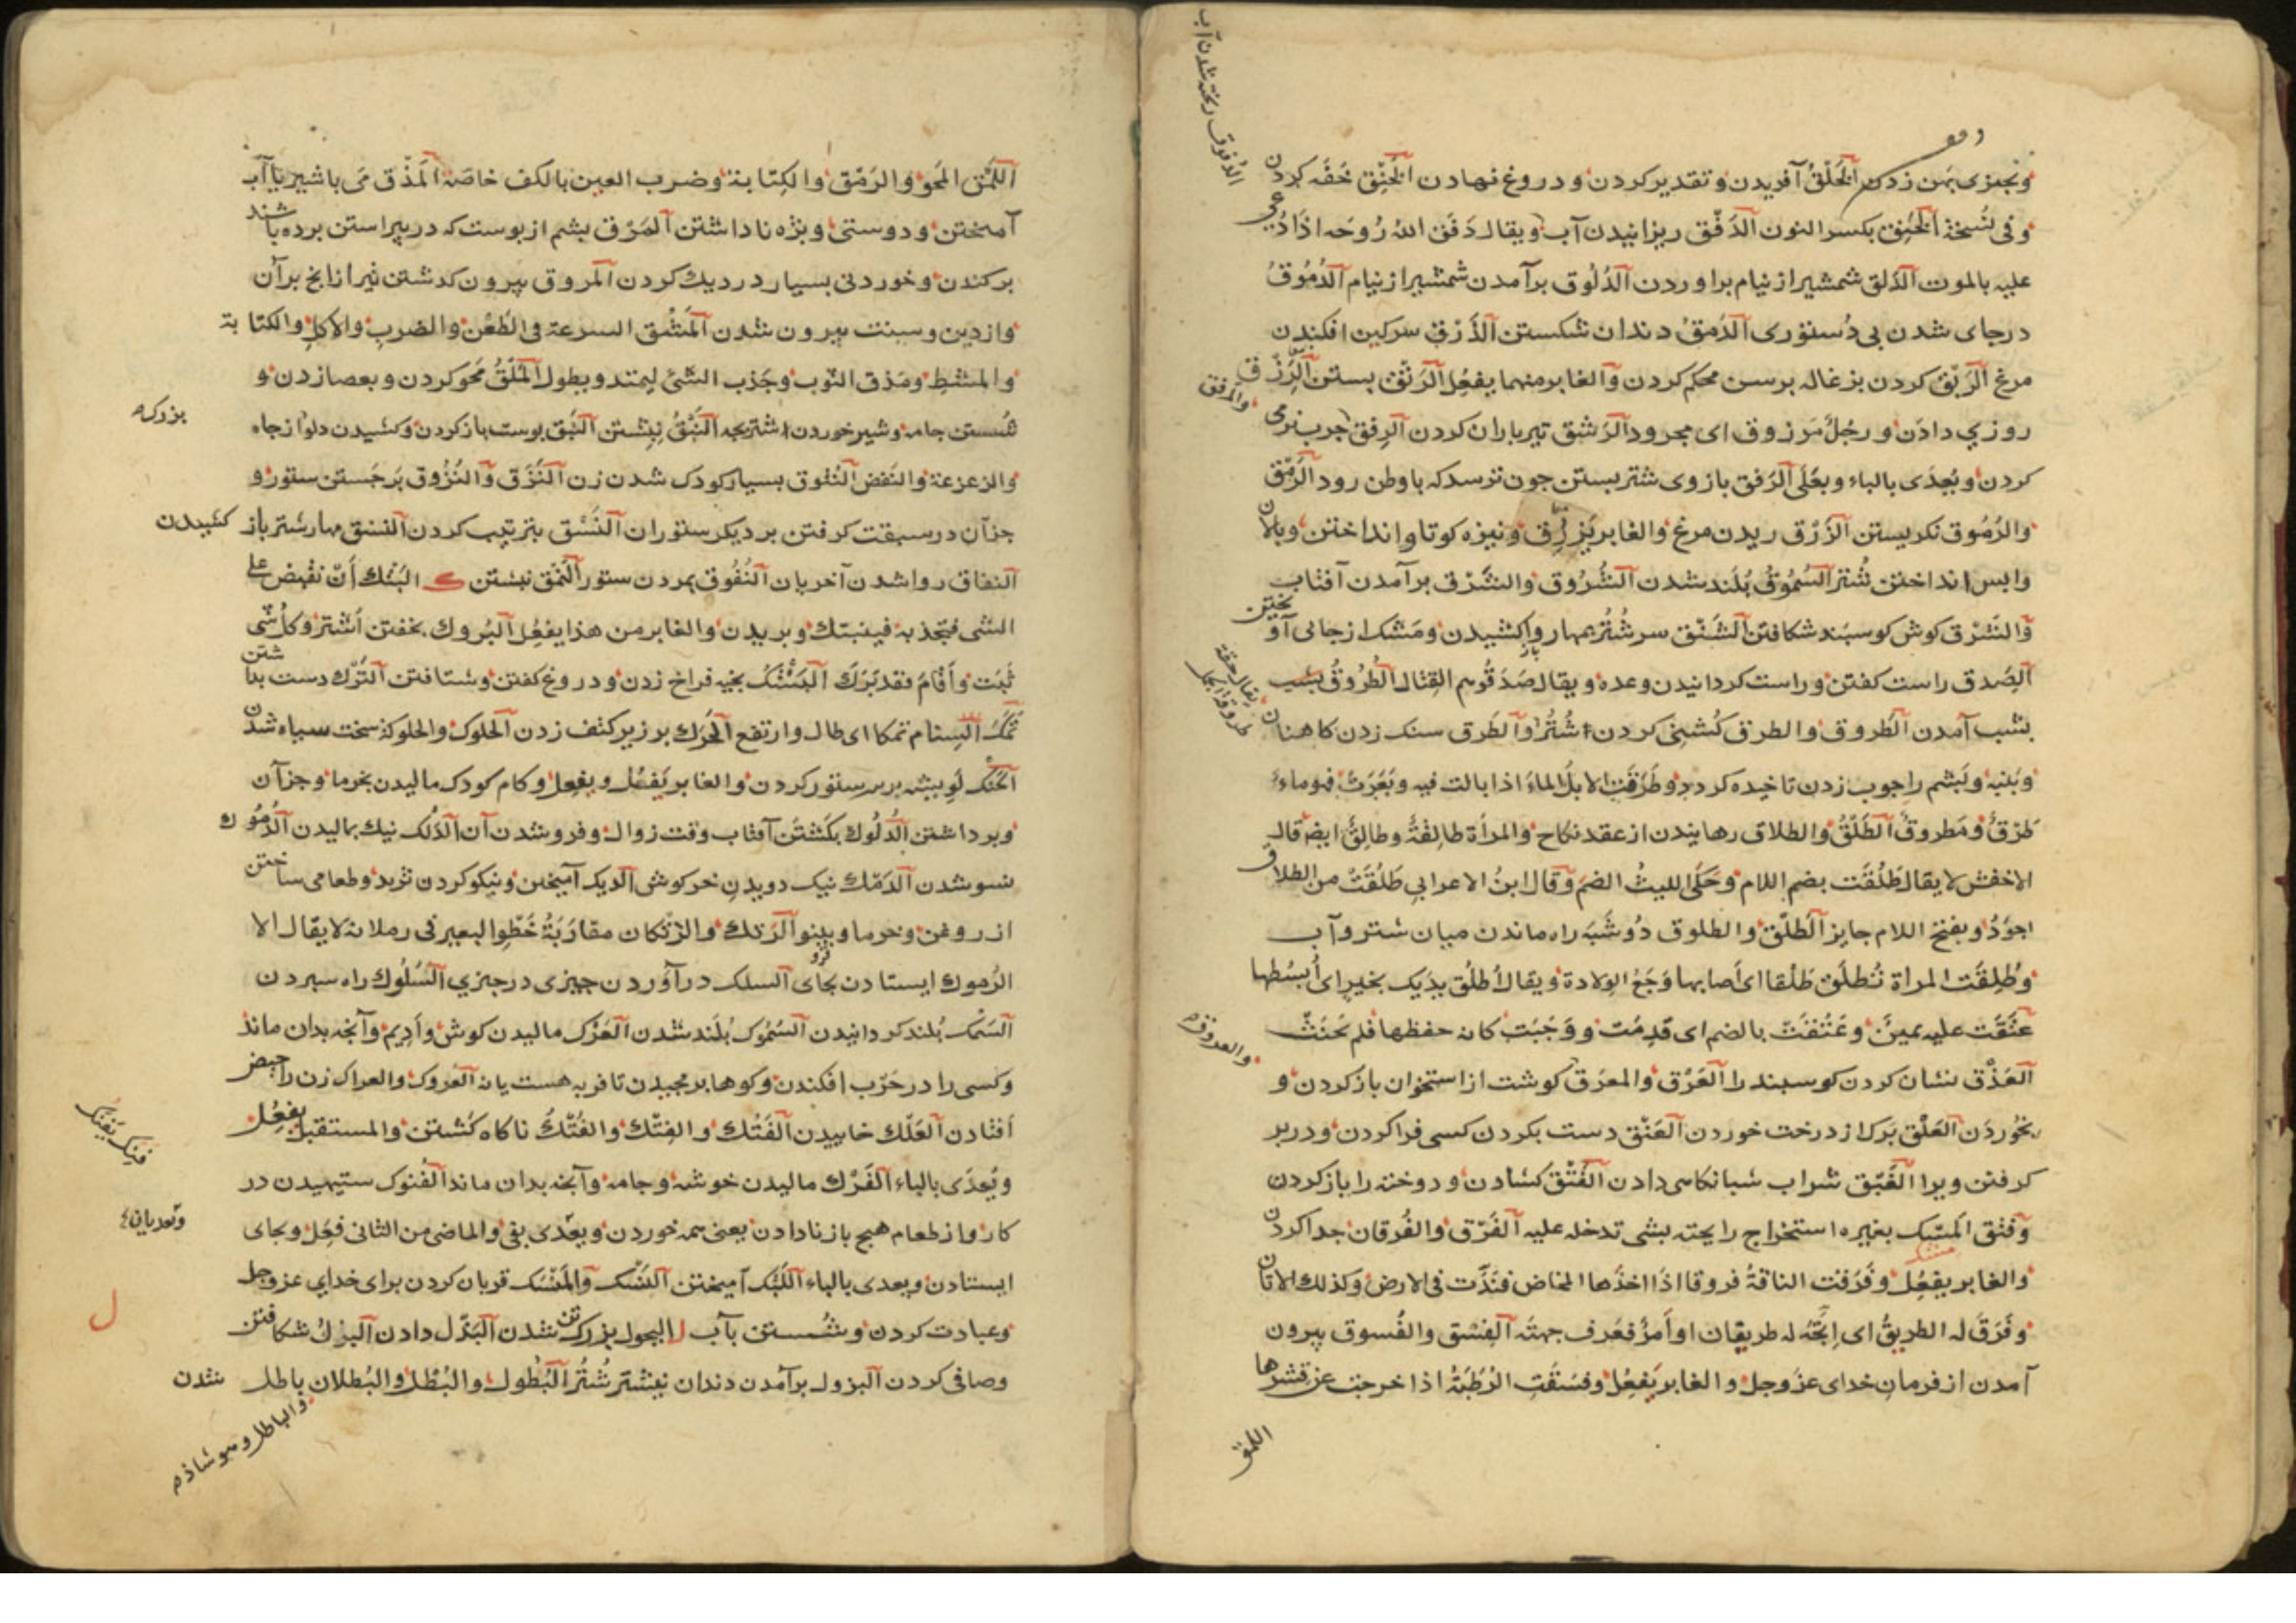 وبجیزی پهن زدن الخَلْقُ آفریدن وتقدیر کردن ودروغ نهادن الخَنِقُ خَفَه کردن
وفی نُسخة الخَنِق بکسر النون الدَفْق ریزانیدن آب ویقال دَفَق اللهُ رُوحَه اذا دُعِیَ
علیه بالموت الدَلق شمشیر از نیام براوردن الدُلُوق برآمدن شمشیر از نیام الدُمُوقُ
درجای شدن بی دُستوری الدَمقُ دندان شکستن الذَرْق سرکین افکندن
مرغ الرَبْق کردن بزغاله برسن محکم کردن والغابر منهما یفعِل الرَتْق بستن الرِزْق
روزی دادن ورجُلٌ مَرزوق ای مجدود الرَشق تیرباران کردن الرِفق چرب نرمی
کردن ویُعدَی بالباء وبعَلَی الرَفق بازوی شتر بستن چون ترسد که باوطن رود الرَمْق
والرُمُوق نکریستن الزَرْق ریدن مرغ والغابر یَزرِق ونیزه کوتاه انداختن وپالان
واپس انداختن شُتر السُمُوقُ بُلند شدن الشُرُوق والشَرْق برآمدن آفتاب
والشَرْق کوش کوسپند شکافتن الشَنْق سر شُتُر بمهار واکشیدن ومَشک از جائی آویختن
الصِدق راست کفتن وراست کردانیدن وعده ویقال صَدَقُوهم القتال الطُرُوقُ بشب
بشب آمدن الطُروق والطرق کُشنی کردن اشتُر والطَرق سنک زدن کاهنان
وپنبه وپَشم را چوب زدن تا خیده کردد وطَرَقَتِ الابلُ الماءَ اذا بالت فیه وبَعَرَت فهو ماءٌ
طَرْقٌ ومَطروقٌ الطَلْقُ والطلاق رهانیدن از عقد نکاح والمرأة طالِقةٌ وطالِقٌ ایضه قال
الاخفش لا یقال طَلُقَت بضم اللام وحَکَی اللیثُ الضمَ وقال ابنُ الاعرابی طَلُقَت من الطلاق
اجوَدُ وبفتح اللام جایز الطَلْق والطلوق دُو شَبَه راه ماندن میان شتر وآب
وطُلِقَت المراة تُطلَق طَلْقا ای اَصابها وَجَعُ الوِلادة ویقال اُطلُق یدَیک بخیرٍ ای اُبسُطها
عَتَقَت علیه یمینٌ وعَتُقَت بالضم ای قدِمَت ووَجَبَت کانه حفظها فلم یَحنَث
العَذْق نشان کردن کوسپند را العَرْق والمعرَق کوشت از استخوان باز کردن و
بخُوردَن العَلْق بَرک از درخت خوردن العَنْق دست بکردن کسی فرا کردن ودر بر
کرفتن ویرا الغَبْق شراب شبانکاهی دادن الفَتْق کشادن ودوخته را باز کردن
وفتق المِسک بغیره استخراج رایحته بشی تدخله علیه الفَرْق والفُرقان جدا کردن
والغابر یفعُل وفَرَقت الناقةُ فروقا اذا اخذَها المخاض فنَدَّت فی الارض وکذلک الاتان
وفَرَقَ له الطریقُ ای اِتَّجَهَ له طریقان او اَمرٌ فعَرف جهتَه الفِسْق والفُسوق بیرون
آمدن از فرمان خدای عزوجل والغابر یَفعِلُ وفسَقَتِ الرُطَبَةُ اذا خرجت عن قشرها
الدُفوق ریخته شدن آب
والمَرفق
یقال حِقّة طروقة الفحل
والعذوقه
اللمق
اللَمْق المَحو والرَمْق والکِتابة وضرب العین بالکف خاصّة المَذْق می باشیر یا آب
آمیختن ودوستی ویژه ناداشتن المَرْق پشم از پوست که در پیراستن برده باشند
برکندن وخوردنی بسیار در دیک کردن المروق بیرون کدشتن تیر از انج برآن
واز دین وسنت بیرون شدن المَشْق السرعة فی الطَعْن والضرب والاکل والکتابة
والمشطِ ومَذق الثوب وجَذب الشئ لیمتد ویطول المَلْقُ مَحو کردن وبعصا زدن و
شُستن جامه وشیر خوردن اشتر بچه النَبْقُ نبشتن النَتْق پوست باز کردن وکشیدن دلو از چاه
والزعزعة والنَفض النُتُوق بسیار کودک شدن زن النَزَق والنُزُوق بَرجَستن ستور و
جز آن در سبقت کرفتن بر دیکر ستوران النَسْق بترتیب کردن النشق مهار شتر باز کشیدن
النفاق روا شدن آخریان النُفُوق بمردن ستور النَمْق نبشتن ک البَتْك اَن تقبِض علی
الشی فتجذبه فینبتک وبریدن والغابر من هذا یفعُل البُروك بخفتن اُشتر وکلُ شی
ثبَت واَقامَ فقد بَرَكَ البَشْكُ بخیه فراخ زدن ودروغ کفتن وشتافتن التَرك دست بداشتن
تَمَكَ السنام تمکا ای طال وارتفع الحَرك بر زبر کتف زدن الحلوک والحلوکة سخت سیاه شدن
الحَنْك لَویشه بر سر ستور کردن والغابر یَفعُل ویفعِل وکام کودک مالیدن بخرما وجز آن
وبرداشتن الدُلُوك بکَشتَن آفتاب وقت زوال وفرو شدن آن الدَلک نیک بمالیدن الدُمُوك
نسو شدن الدَمْك نیک دویدن خرکوش الدیک آمیختن ونیکو کردن ثرید وطعامی ساختن
از روغن وخرما وپینو الرَتك والرَتَکان مقارَبَةُ خَطْوِ البعیر فی رملانه لا یقال الا
الرُموك ایستادن بجای السلک درآوردن چیزی در چیزی السُلُوك راه سپردن
السَمْك بُلند کردانیدن السُمُوک بُلَند شدن العَرْک مالیدن کوش واَدیم وآنچه بدان ماند
وکسی را در حَرْب افکندن وکوهان برمجیدن تا فربه هست یا نه العُروک والعراک زن را حیض
اَفتادن العَلْك خاییدن الفَتْك والفِتْك والفُتْكُ ناکاه کُشتن والمستقبل یفعُل
ویُعدَی بالباء الفَرْك مالیدن خوشه وجامه وآنچه بدان ماند الفُنوک ستیهیدن در
کار واز طعام هیچ باز نادادن یعنی همه خوردن ویعدّی بفی والماضی من الثانی فعِل وبجای
ایستادن ویعدی بالباء اللَبْك آمیختن النُسْك والمَنسَک قربان کردن برای خدای عزوجل
وعبادت کردن وشُستن بآب ل البجول بزرک تن شدن البَذْل دادن البزل شکافتن
وصافی کردن البزول برآمدن دندان نیشتر شُتُر البُطول والبُطْل والبُطلان باطل شدن
بزرک
فتک یفتک
وتعدیان
ل
والباطل وهو شاذ